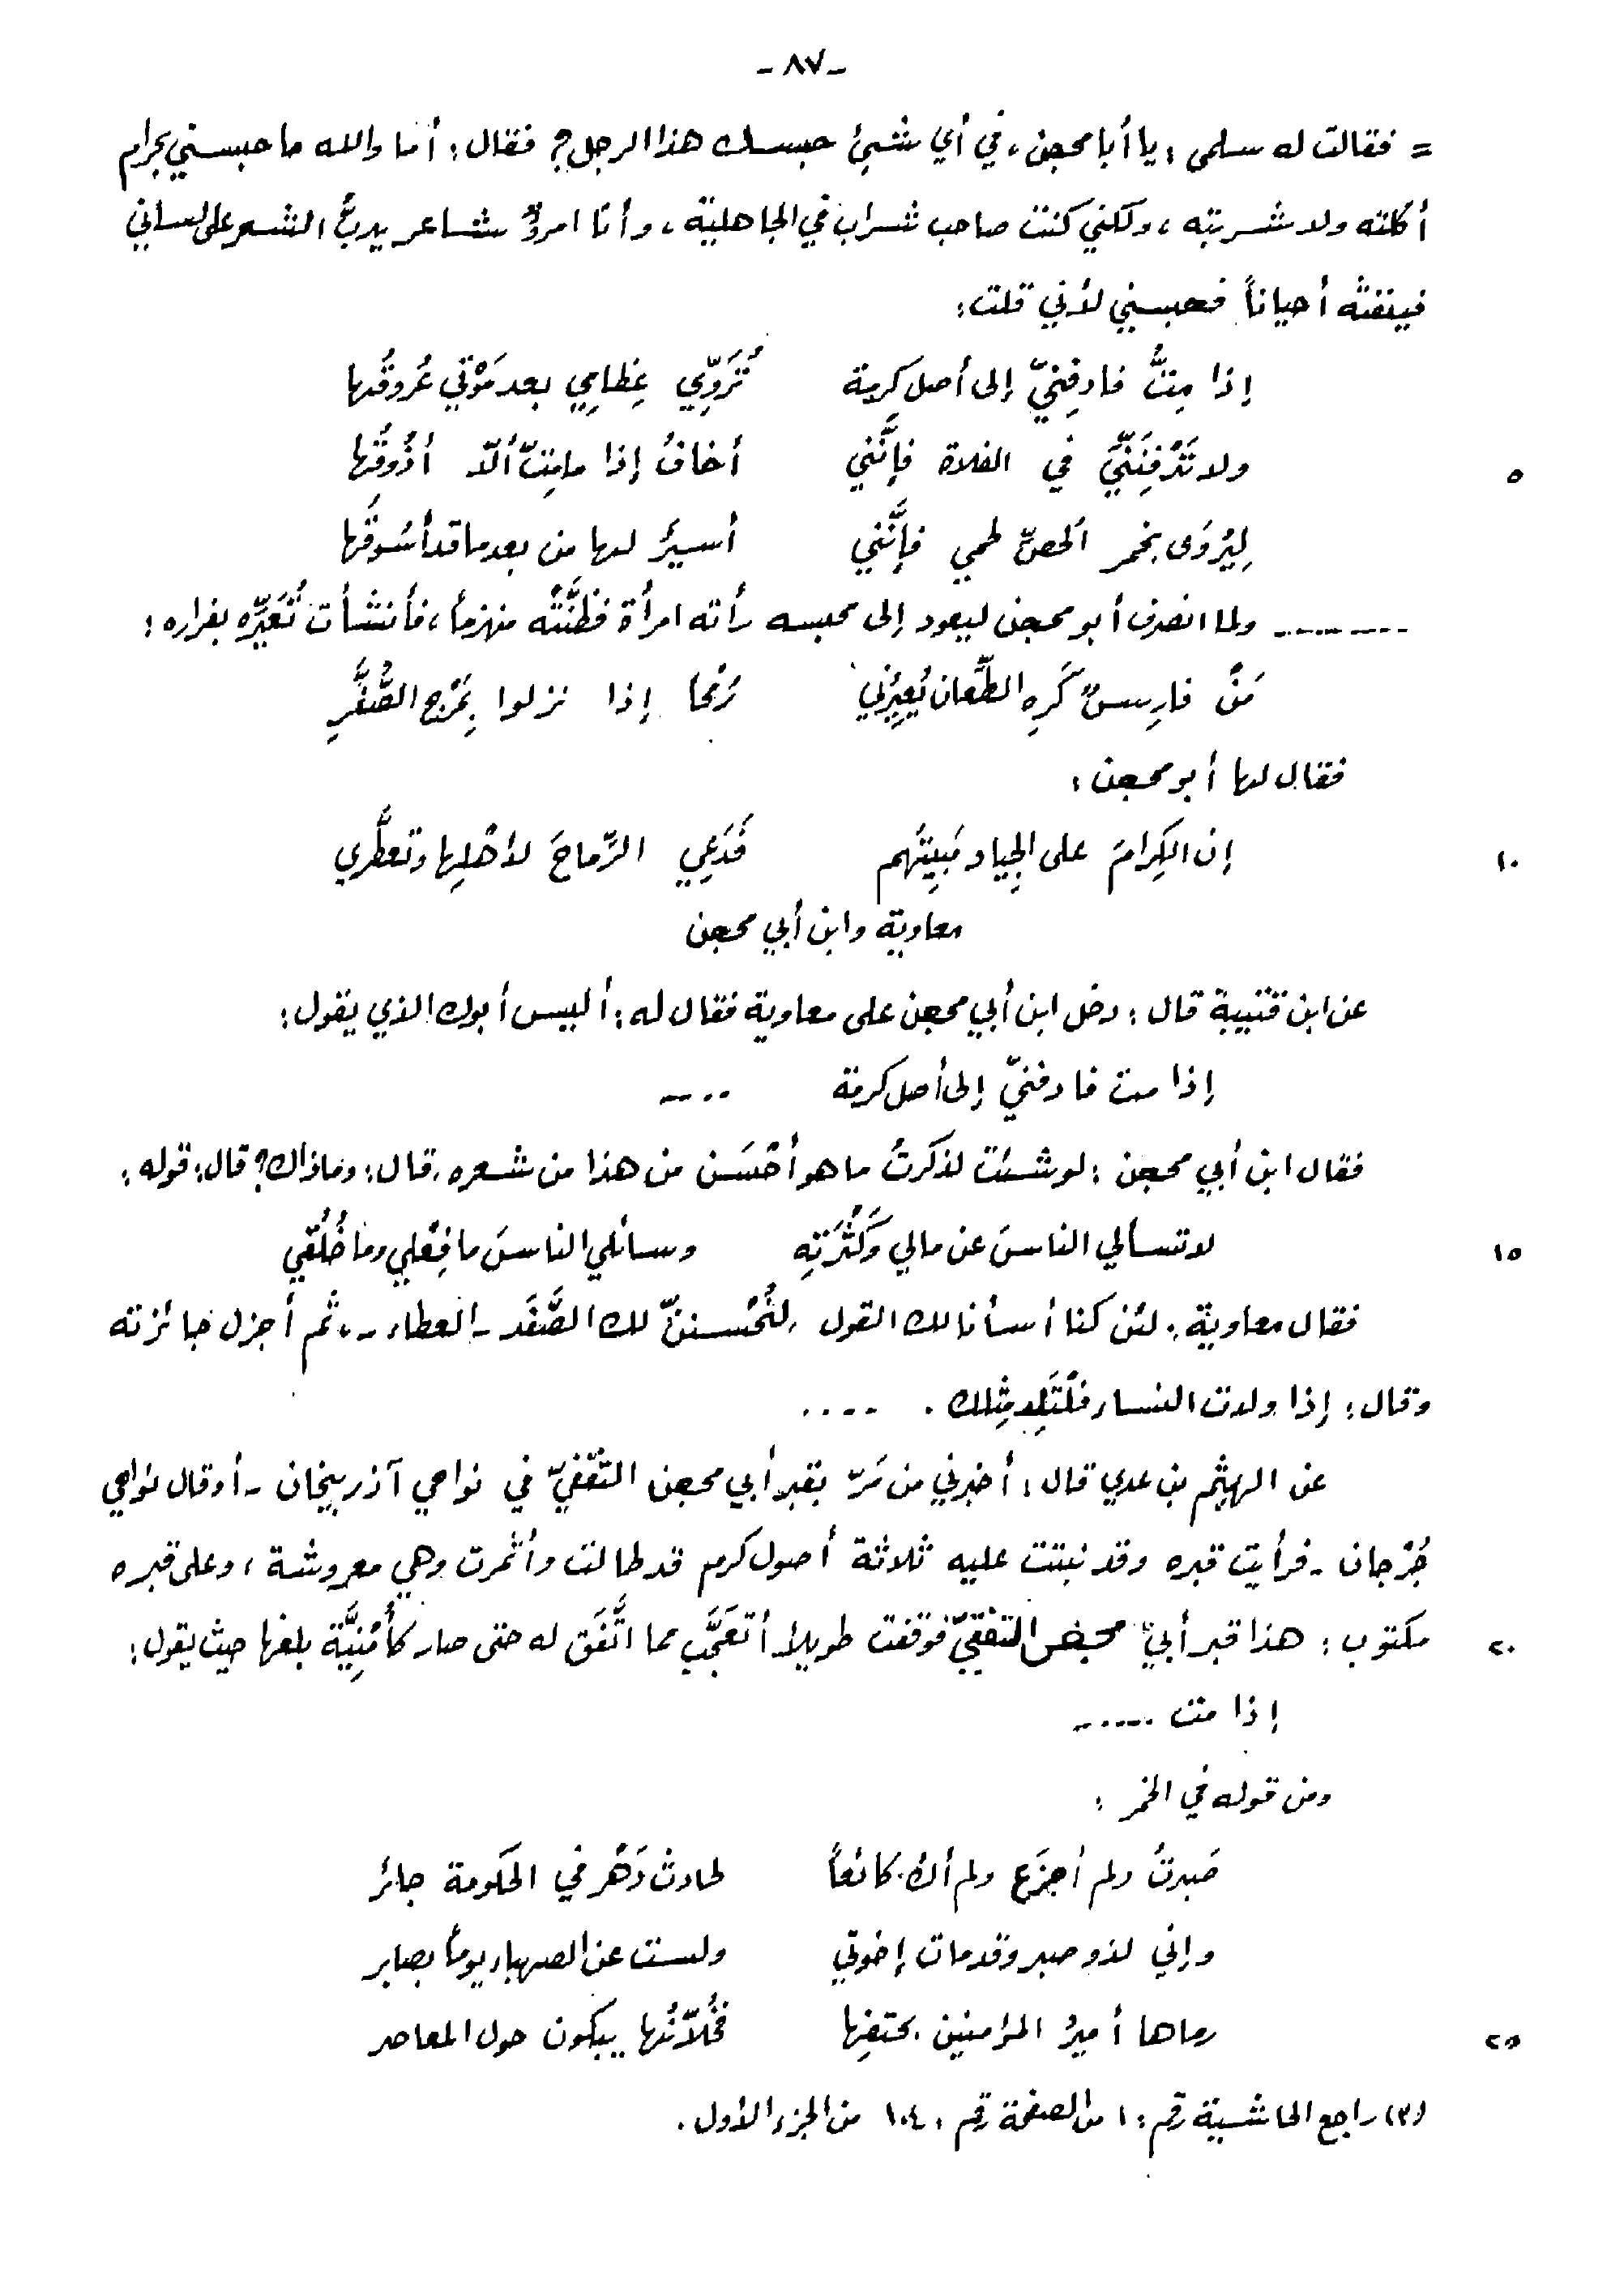 -٨٧-
= فقالت له سلمى: يا أبا محجن، في أي شيئ حبسك هذا الرجل؟ فقال: أما والله ما حبسني بحرام
أكلته ولا شربته، ولكني كنت صاحب شراب في الجاهلية، وأنا امرؤ شاعر يدبُّ الشعر على لساني
فينفثه أحياناً فحبسني لأني قلت:
إذا مِتُّ فادفِنيّ إلى أصل كرمة تُرَوِّي عِظامِي بعد مَوْتي عُروقُها
٥ ولا تَدْفِنَنّيَّ في الفلاة فإنَّني أخافُ إذا مامِتّ ألّا أذُوقُها
لِيُرْوَى بخمر الحصّ لحمي فإنَّني أسيرٌ لها من بعدما قد أسُوقُها
-------- ولما انصرف أبو محجن ليعود إلى محبسه رأته امرأة فظنَّتْه منهزماً، فأنشأت تُعَيِّره بفراره:
مَنْ فارِسٌ كَرِه الطِّعان يُعِيرُني رُمْحاً إذا نزلوا بِمَرْج الصُّفَّرِ
فقال لها أبو محجن:
١٠ إن الكِرامَ على الجِياد مَبِيتُهم فَدَعِي الرِّماحَ لأهْلِها وتعطَّري
معاوية وابن أبي محجن
عن ابن قتيبة قال: دخل ابن أبي محجن على معاوية فقال له: أليس أبوك الذي يقول:
إذا مت فادفنيّ إلى أصل كرمة ....
فقال ابن أبي محجن: لو شئت لذكرتُ ما هو أحْسَن من هذا من شعره، قال: وماذاك؟ قال: قوله:
١٥ لا تسألي الناسَ عن مالي وَكَثْرَتِه وسائلي الناسَ ما فِعْلي وما خُلُقي
فقال معاوية: لئن كنا أسأنا لك القول، لنُحْسننّ لك الصَّفَد -العطاء-، ثم أجزل جائزته
وقال: إذا ولدت النساء فلْتَلِد مِثلك. ....
عن الهيثم بن عدي قال: أخبرني من مَرّ بقبر أبي محجن الثقفيّ في نواحي آذربيجان -أو قال نواحي
جُرْجان- فرأيت قبره وقد نبتت عليه ثلاثة أصول كرم قد طالت وأثمرت وهي معروشة، وعلى قبره
٢٠ مكتوب: هذا قبر أبي محجن الثقفيّ فوقفت طويلاً أتعَجَّب مما اتَّفَق له حتى صار كأُمْنِيَّة بلغها حيث يقول:
إذا مت ......
ومن قوله في الخمر:
صَبرتُ ولم أجزَع ولم أك كائعاً لحادث دَهْر في الحَكومة جائر
وإني لذو صبر وقد مات إخوتي ولست عن الصهباء يوماً بصابر
٢٥ رماها أميرُ المؤمنين بحتفِها فخُلّانُها يبكون حول المعاصر
(٣) راجع الحاشية رقم: ١ من الصفحة رقم: ١٠٤ من الجزء الأول.